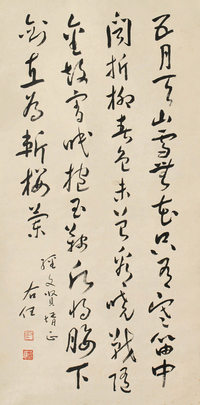 五月天山雪無花只有寒笛中
聞折柳春色未曾看曉戰隨
金鼓宵眠抱玉鞍願將腰下
劍直為斬樓蘭
文賢婿正
右任